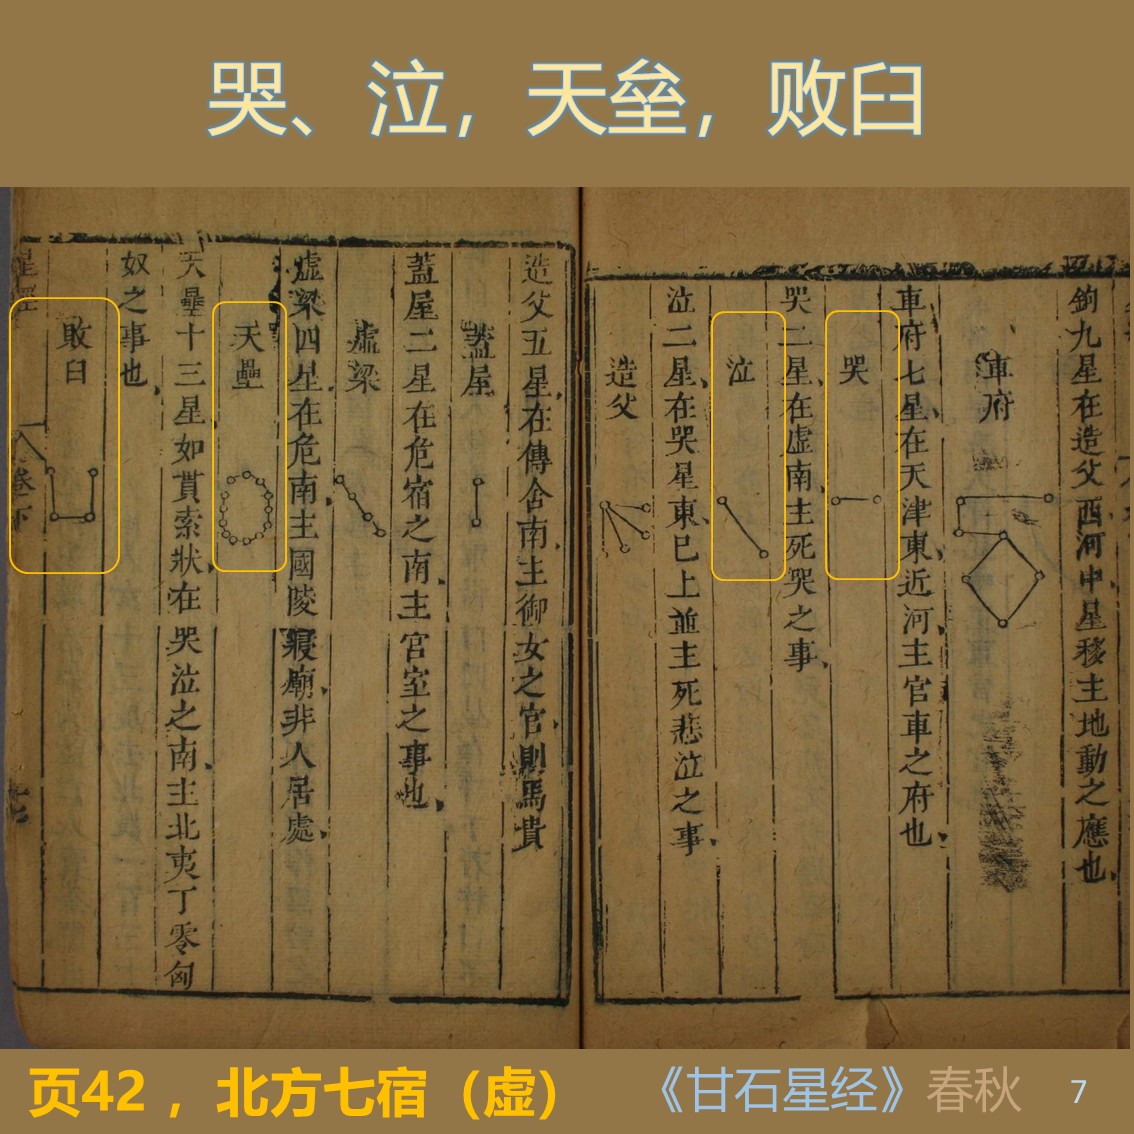 哭、泣，天垒，败臼
鉤九星在造父西河中星移主地動之應也
車府
車府七星在天津東近河主官車之府也
哭
哭二星在虚南主死哭之事
泣
泣二星在哭星東巳上並主死悲泣之事
造父
造父五星在傳舍南主御女之官則馬貴
蓋屋
蓋屋二星在危宿之南主官室之事也
虚梁
虚梁四星在危南主國陵寢廟非人居處
天壘
天壘十三星如貫索狀在哭泣之南主北夷丁零匈
奴之事也
敗臼
星經
卷下
页42，北方七宿（虚）
《甘石星经》春秋
7